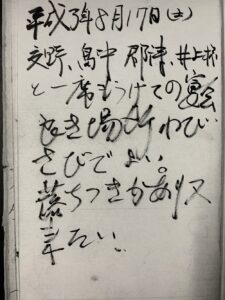 平成3年8月17日(土)
交野、畠中 郡津、井上様
と一席もうけての宴会
よき場所わび
さびでよい。
落ちつきがあり又
来たい、